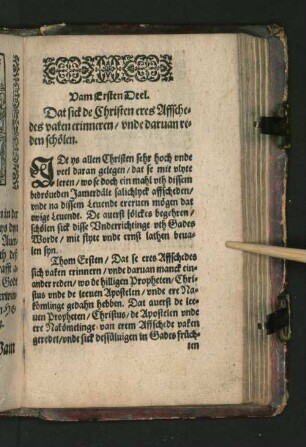 Vam Ersten Deel.
Dat sick de Christen eres Affsche-
des vaken erinneren / vnde daruan re-
den schölen.
IDt ys allen Christen sehr hoch vnde
veel daran gelegen / dat se mit vlyte
leren / wo se doch ein mahl vth dissem
bedröueden Jamerdale salichlyck affscheden /
vnde na dissem Leuende ereruen mögen dat
ewige Leuendt. De auerst sölckes begehren /
schölen sick disse Vnderrichtinge vth Gades
Worde / mit flyte vnde ernst lathen beua-
len syn.
Thom Ersten / Dat se eres Affschedes
sich vaken erinnern / vnde daruan manck ein-
ander reden / wo de hilligen Propheten / Chri-
stus vnde de leeuen Apostelen / vnde ere Na-
kömlinge gedahn hebben. Dat auerst de lee-
uen Propheten / Christus / de Apostelen vnde
ere Nakömelinge van erem Affschede vaken
geredet / vnde sick dessüluigen in Gades früch-
ten